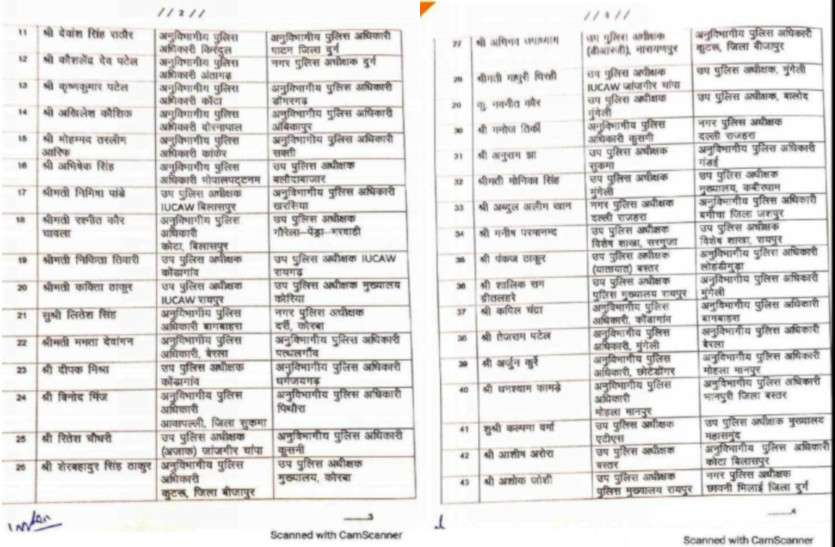 //2//
11 श्री देवांश सिंह राठौर अनुविभागीय पुलिस अनुविभागीय पुलिस अधिकारी
अधिकारी किरंदुल पाटन जिला दुर्ग
12 श्री कौशलेंद्र देव पटेल अनुविभागीय पुलिस नगर पुलिस अधीक्षक दुर्ग
अधिकारी अंतागढ़
13 श्री कृष्णकुमार पटेल अनुविभागीय पुलिस अनुविभागीय पुलिस अधिकारी
अधिकारी कोंटा डोंगरगढ़
14 श्री अखिलेश कौशिक अनुविभागीय पुलिस अनुविभागीय पुलिस अधिकारी
अधिकारी दोरनापाल अंबिकापुर
15 श्री मोहम्मद तस्लीम अनुविभागीय पुलिस अनुविभागीय पुलिस अधिकारी
आरिफ अधिकारी कांकेर सक्ती
16 श्री अभिषेक सिंह अनुविभागीय पुलिस उप पुलिस अधीक्षक
अधिकारी भोपालपट्टनम बलौदाबाजार
17 श्रीमती निमिषा पांडे उप पुलिस अधीक्षक अनुविभागीय पुलिस अधिकारी
IUCAW बिलासपुर खरसिया
18 श्रीमती रश्मीत कौर अनुविभागीय पुलिस उप पुलिस अधीक्षक
चावला अधिकारी गौरेला-पेंड्रा-मरवाही
कोटा, बिलासपुर
19 श्रीमती निकिता तिवारी उप पुलिस अधीक्षक उप पुलिस अधीक्षक IUCAW
कोंडागांव रायगढ़
20 श्रीमती कविता ठाकुर उप पुलिस अधीक्षक उप पुलिस अधीक्षक मुख्यालय
IUCAW रायपुर कोरिया
21 सुश्री लितेश सिंह अनुविभागीय पुलिस नगर पुलिस अधीक्षक
अधिकारी बागबाहरा दर्री, कोरबा
22 श्रीमती ममता देवांगन अनुविभागीय पुलिस अनुविभागीय पुलिस अधिकारी
अधिकारी, बेरला पत्थलगाँव
23 श्री दीपक मिश्रा उप पुलिस अधीक्षक अनुविभागीय पुलिस अधिकारी
कोंडागांव धर्मजयगढ़
24 श्री विनोद मिंज अनुविभागीय पुलिस अनुविभागीय पुलिस अधिकारी
अधिकारी पिथौरा
आवापल्ली, जिला सुकमा
25 श्री रितेश चौधरी उप पुलिस अधीक्षक अनुविभागीय पुलिस अधिकारी
(अजाक) जांजगीर चांपा कुसमी
26 श्री शेरबहादुर सिंह ठाकुर अनुविभागीय पुलिस उप पुलिस अधीक्षक
अधिकारी मुख्यालय, कोरबा
कुटरू, जिला बीजापुर
3
Scanned with CamScanner
27 श्री अभिनव उपाध्याय उप पुलिस अधीक्षक अनुविभागीय पुलिस अधिकारी
(डीआरजी), नारायणपुर कुटरू, जिला बीजापुर
28 श्रीमती उप पुलिस अधीक्षक उप पुलिस अधीक्षक, मुंगेली
IUCAW जांजगीर चांपा
29 कु. नवनीत कौर उप पुलिस अधीक्षक उप पुलिस अधीक्षक, बालोद
मुंगेली
30 श्री मनोज तिर्की अनुविभागीय पुलिस नगर पुलिस अधीक्षक
अधिकारी कुसमी दल्ली राजहरा
31 श्री अनुराग झा उप पुलिस अधीक्षक अनुविभागीय पुलिस अधिकारी
सुकमा गंडई
32 श्रीमती मोनिका सिंह उप पुलिस अधीक्षक उप पुलिस अधीक्षक
मुंगेली मुख्यालय, कबीरधाम
33 श्री अब्दुल अलीम खान नगर पुलिस अधीक्षक अनुविभागीय पुलिस अधिकारी
दल्ली राजहरा बगीचा जिला जशपुर
34 श्री मनीष परमानन्द उप पुलिस अधीक्षक उप पुलिस अधीक्षक
विशेष शाखा, सरगुजा विशेष शाखा, रायपुर
35 श्री पंकज ठाकुर उप पुलिस अधीक्षक अनुविभागीय पुलिस अधिकारी
(यातायात) बस्तर लोहंडीगुड़ा
36 श्री शालिक राम उप पुलिस अधीक्षक अनुविभागीय पुलिस अधिकारी
धृतलहरे पुलिस मुख्यालय रायपुर मुंगेली
37 श्री कपिल चंद्रा अनुविभागीय पुलिस अनुविभागीय पुलिस अधिकारी
अधिकारी, कोंडागांव बागबाहरा
38 श्री तेजराम पटेल अनुविभागीय पुलिस अनुविभागीय पुलिस अधिकारी
अधिकारी, मुंगेली बेरला
39 श्री अर्जुन कुर्रे अनुविभागीय पुलिस अनुविभागीय पुलिस अधिकारी
अधिकारी, छोटेडोंगर मोहला मानपुर
40 श्री घनश्याम कामड़े अनुविभागीय पुलिस अनुविभागीय पुलिस अधिकारी
अधिकारी भानपुरी जिला बस्तर
मोहला मानपुर
41 सुश्री कल्पना वर्मा उप पुलिस अधीक्षक उप पुलिस अधीक्षक मुख्यालय
एटीएस महासमुंद
42 श्री आशीष अरोरा उप पुलिस अधीक्षक अनुविभागीय पुलिस अधिकारी
बस्तर कोटा बिलासपुर
43 श्री अशोक जोशी उप पुलिस अधीक्षक नगर पुलिस अधीक्षक
पुलिस मुख्यालय रायपुर छावनी भिलाई जिला दुर्ग
4
Scanned with CamScanner